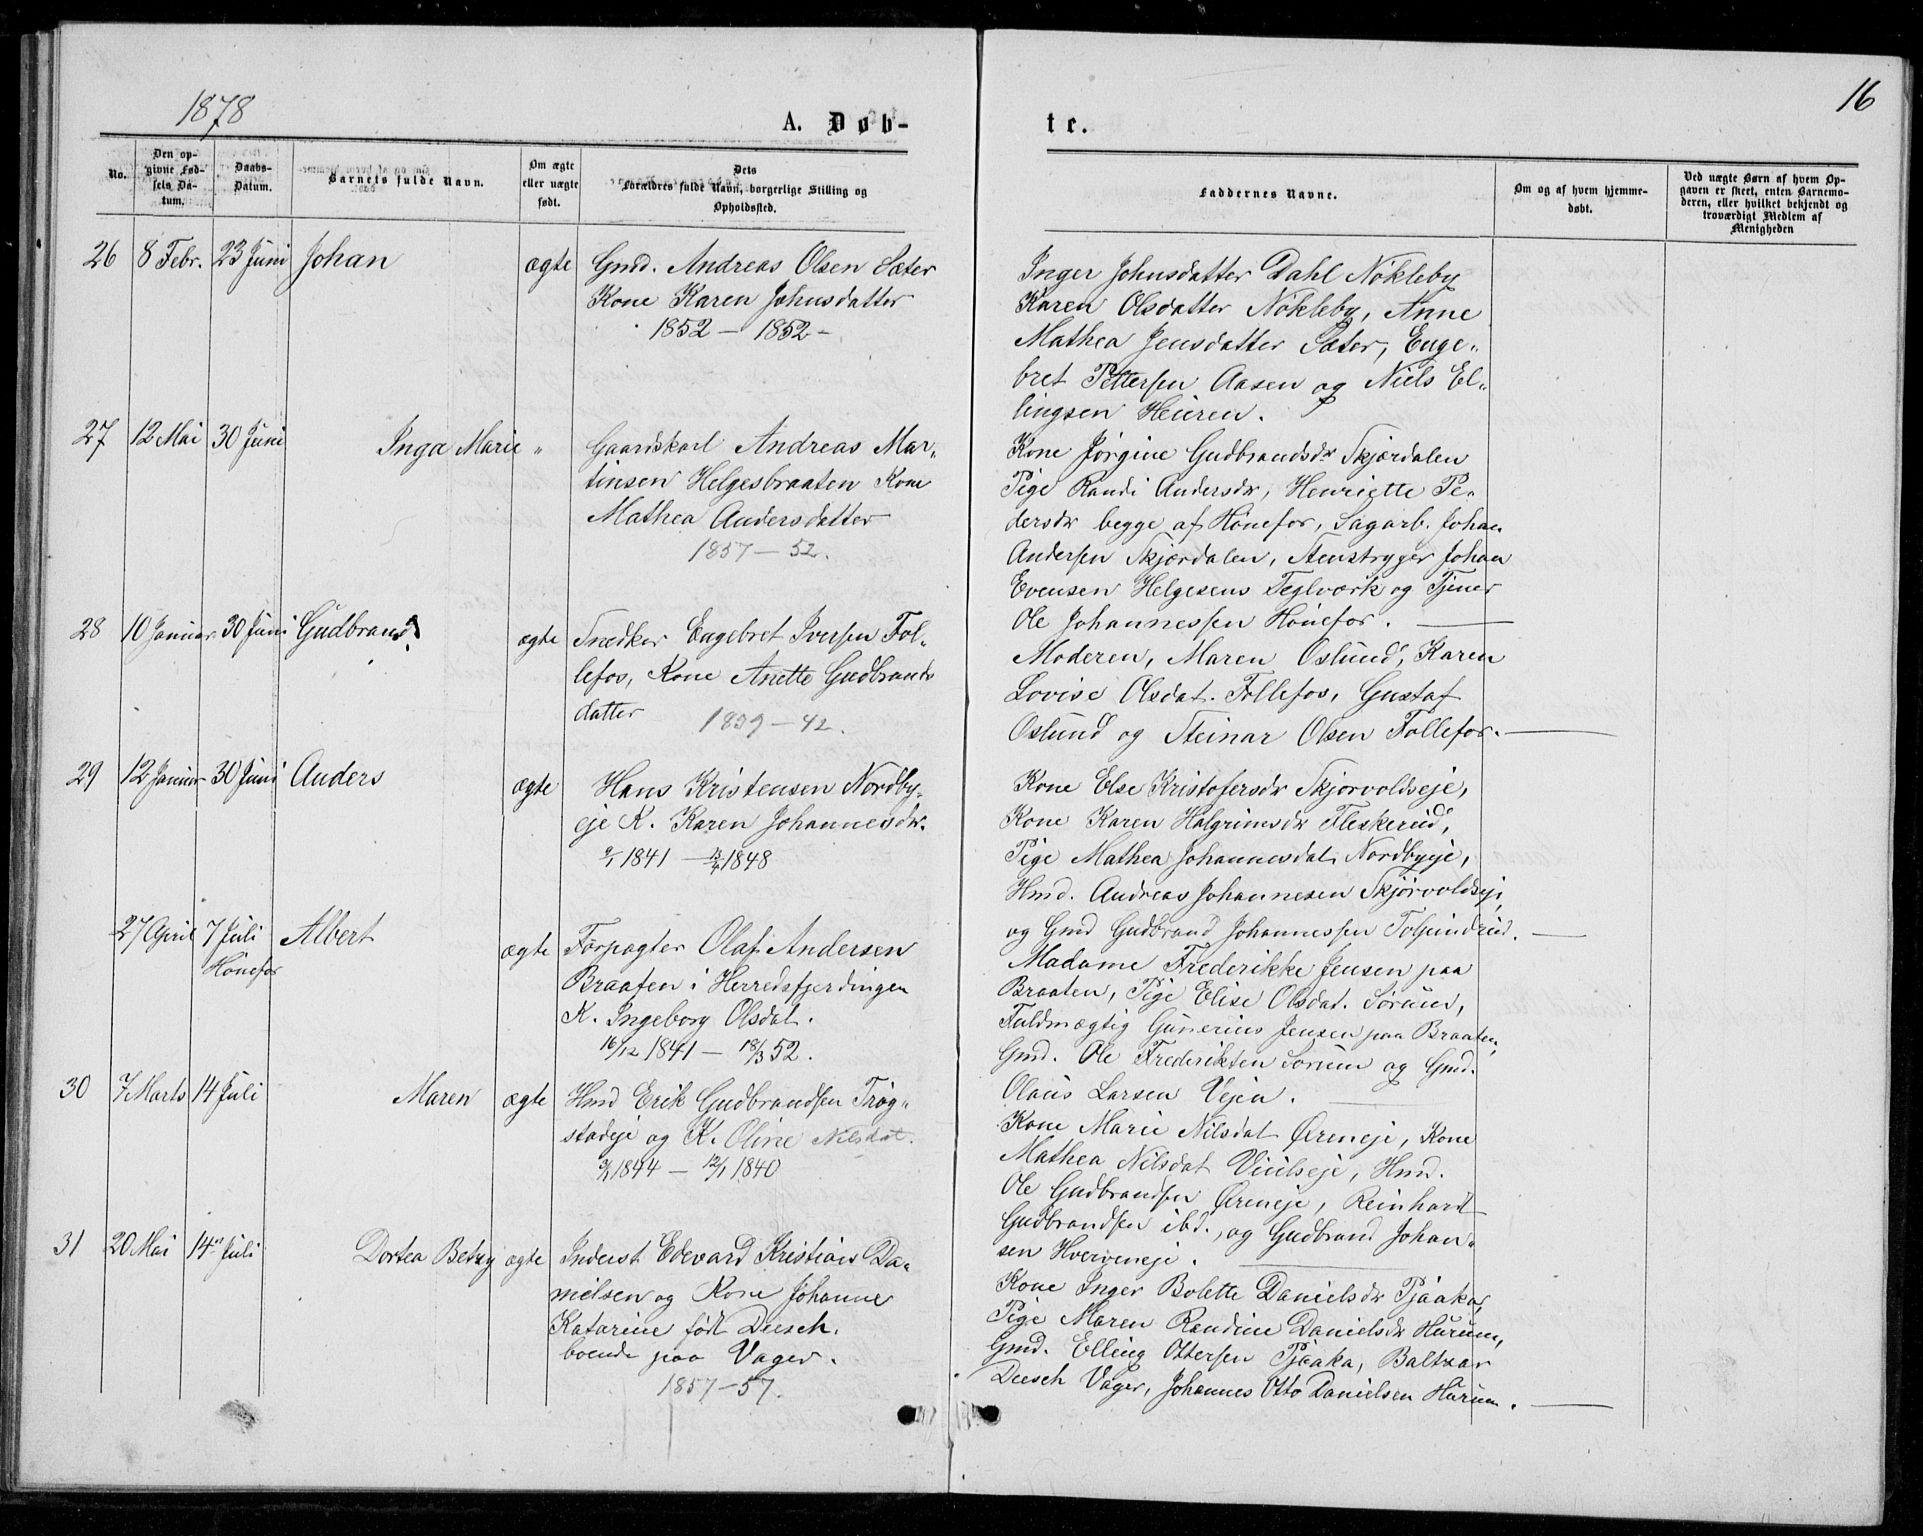 1878
A. Døb-
No.
Den op-
givne Fød-
sels Da-
tum.
Daabs-
Datum.
Barnets fulde Navn.
Om ægte
eller uægte
født.
Dets
Forældres fulde Navn, borgerlige Stilling og
Opholdssted.
26 8 Febr. 23 Juni Johan ægte Gmd. Andreas Olsen Sæter
Kone Karen Johnsdatter
1852 – 1852 –
27 12 Mai 30 Juni Inga Marie „ Gaardskarl Andreas Mar-
tinsen Helgesbraaten Kone
Mathea Andersdatter
1857 – 52.
28 10 Januar 30 Juni Gudbrand ægte Snedker Engebret Iversen Fol-
lefos, Kone Anette Gudbrands
datter 1839 – 42.
29 12 Januar 30 Juni Anders ægte Hans Kristensen Nordby-
eje K. Karen Johannesdr.
1841 – 1848
27 April 7 Juli Albert ægte Forpagter Olaf Andersen
Hønefos
Braaten i Herredsfjerdingen
K. Ingeborg Olsdat.
16/12 1841 – 18/3 52.
30 7 Marts 14 Juli Maren ægte Hmd Erik Gudbrandsen Trøg-
stadeje og K. Oline Nilsdat.
1844 – 12/1 1840
31 20 Mai 14 Juli Dortea Betzy ægte Inderst Edevard Kristians Da-
nielsen og Kone Johanne
Katarine født Deesch.
boende paa Vager.
1857 – 57.
16
te.
Faddernes Navne.
Om og af hvem hjemme-
døbt.
Ved uægte Børn af hvem Op-
gaven er skeet, enten Barnemo-
deren, eller hvilket bekjendt og
troværdigt Medlem af
Menigheden
Inger Johnsdatter Dahl Nøkleby
Karen Olsdatter Nøkleby, Anne
Mathea Jensdatter Sæter, Enge-
bret Pettersen Aasen og Niels El-
lingsen Heieren.
Kone Jørgine Gudbrandsdr Skjærdalen
Pige Randi Andersdr, Henriette Pe-
dersdr begge af Hønefos, Sagarb. Johan
Andersen Skjærdalen, Stenstryger Johan
Evensen Helgesens Teglværk og Tjener
Ole Johannessen Hønefos.
Moderen, Maren Oslund, Karen
Lovise Olsdat. Follefos, Gustaf
Oslund og Steinar Olsen Follefos.
Kone Else Kristofersdr Skjørvoldseje,
Kone Karen Halgrimsdr Fleskerud,
Pige Mathea Johannesdat. Nordbyeje,
Hmd. Andreas Johannesen Skjørvoldseje,
og Gmd Gudbrand Johannessen Tolpinrud.
Madame Frederikke Jensen paa
Braaten, Pige Elise Olsdat. Sørum,
Fuldmægtig Gunerius Jensen paa Braaten,
Gmd. Ole Frederiksen Sørum og Gmd.
Olaus Larsen Vejen.
Kone Marie Nilsdat Øreneje, Kone
Mathea Nilsdat Viulseje, Hmd.
Ole Gudbrandsen Øreneje, Reinhard
Gudbrandsen ibd., og Gudbrand Johan-
sen Hverveneje.
Kone Inger Bolette Danielsdr Tjaaka,
Pige Maren Randine Danielsdr Hurum,
Gmd. Elling Ottersen Tjaaka, Baltzar
Deesch Vager, Johannes Otto Danielsen Hurum.